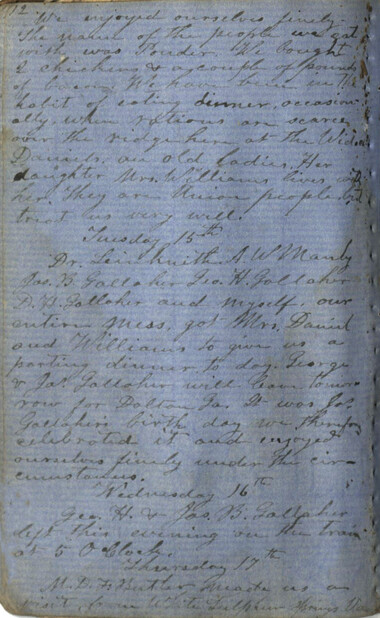 102
We enjoyed ourselves finely.
The name of the people we eat
with was Ponder. We bought
2 chickens & a couple of pounds
of bacon. We have been in the
habit of eating dinner, occasion-
ally, when rations are scarce,
over the ridge here at the Widow
Daniels, an old ladies. Her
daughter Mrs. Williams lives with
her. They are Union people but
treat us very well.
Tuesday 15th
Dr. A W Manly
Jas. B Gallaher Geo. H. Gallaher
D. H. Gallaher and myself, our
entire mess, got Mrs. Daniel
and Williams to give us a
parting dinner to day. George
& Jas. Gallaher will leave tomor
row for Dalton Ga. It was Jas
Gallahers birth day we therefore
celebrated it and enjoyed
ourselves finely under the cir-
cumstances.
Wednesday 16th
Geo. H. & Jas. B. Gallaher
left this evening on the train
at 5 O Clock.
Thursday 17th
M. D. L. Butler made us a
visit from White Sulphur Springs